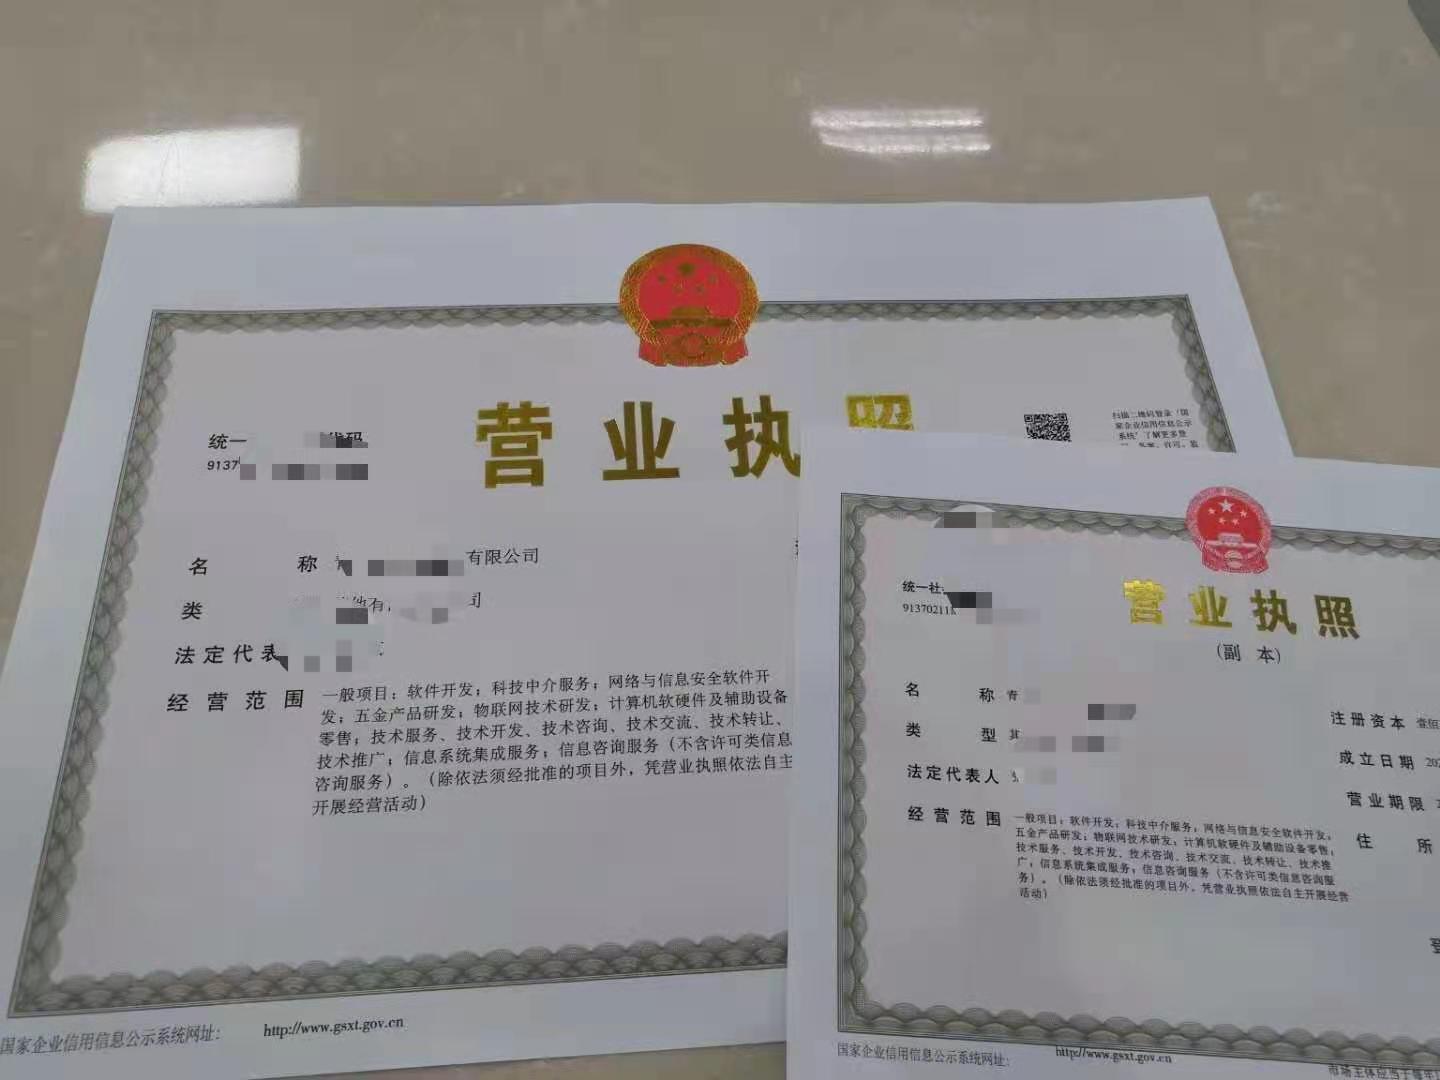 营业执照
统一
代码
9137
扫描二维码登录‘国
家企业信用信息公示
系统’了解更多登
名 称
有限公司
类
司
法定代表
经营范围
一般项目：软件开发；科技中介服务；网络与信息安全软件开
发；五金产品研发；物联网技术研发；计算机软硬件及辅助设备
零售；技术服务、技术开发、技术咨询、技术交流、技术转让、
技术推广；信息系统集成服务；信息咨询服务（不含许可类信息
咨询服务）。（除依法须经批准的项目外，凭营业执照依法自主
开展经营活动）
国家企业信用信息公示系统网址：
http://www.gsxt.gov.cn
营业执照
（副 本）
统一社
91370211
名 称 青
类 型 其
法定代表人
经营范围
一般项目：软件开发；科技中介服务；网络与信息安全软件开发；
五金产品研发；物联网技术研发；计算机软硬件及辅助设备零售；
技术服务、技术开发、技术咨询、技术交流、技术转让、技术推
广；信息系统集成服务；信息咨询服务（不含许可类信息咨询服
务）。（除依法须经批准的项目外，凭营业执照依法自主开展经营
活动）
注册资本 壹佰
成立日期 202
营业期限
住 所
国家企业信用信息公示系统网址：
http://www.gsxt.gov.cn
市场主体应当于每年